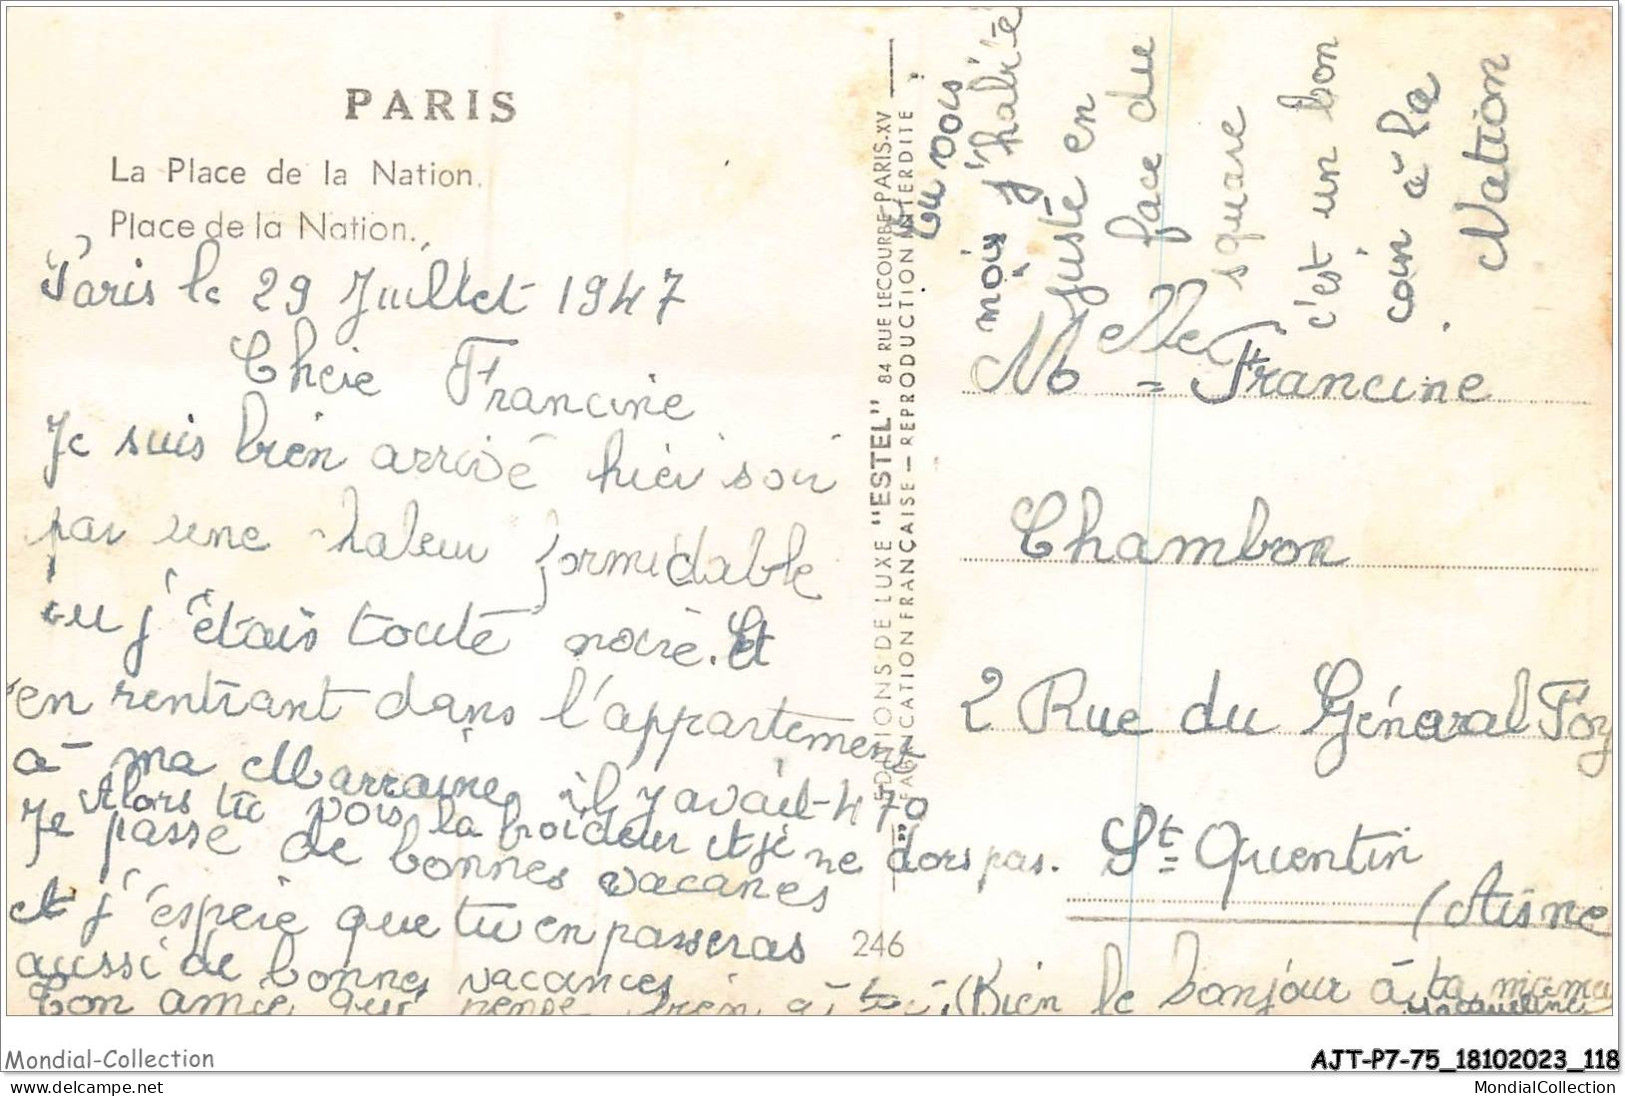 PARIS
La Place de la Nation.
Place de la Nation.
Paris le 29 Juillet 1947
Cheie Francine
Je suis bien arrivé hier soir
par une haleur formidable
j'étais toute noire. Et
en rentrant dans l'appartement
à ma Marraine il y avait 470
Alors tu vois la froideur et je ne dors pas.
Je passe de bonnes vacanes
et j'espère que tu en passeras
aussi de bonnes vacances
Ton amie qui pense bien à toi (Bien le bonjour à ta
Jacqueline
EDITIONS DE LUXE "ESTEL" 84 RUE LECOURBE-PARIS-XV
FABRICATION FRANÇAISE — REPRODUCTION INTERDITE
246
tu vois
mois j'habite
juste en
face du
square
c'est un bon
coin à la
Nation
Melle Francine
Chambon
2 Rue du Général Foy
St Quentin
(Aisne
Mondial-Collection
AJT-P7-75_18102023_118
www.delcampe.net
MondialCollection